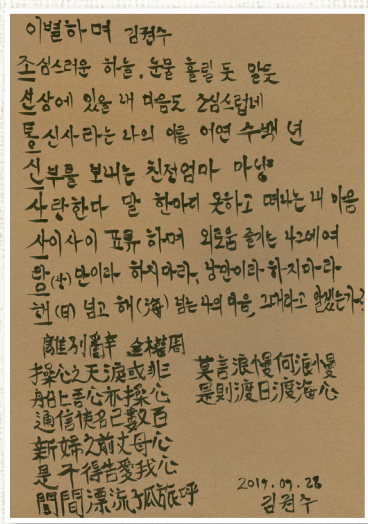 이별하며 김권주
조심스러운 하늘, 눈물 흘릴 듯 말듯
선상에 있을 내 마음도 조심스럽네
통신사라는 나의 이름 어언 수백 년
신부를 보내는 친정엄마 마냥
사랑한다 말 한마디 못하고 떠나는 내 마음
사이사이 표류하며 외로움 즐기는 나그네여
만이라 하지마라, 낭만이라 하지마라
해(日) 넘고 해(海) 넘는 나의 마음, 그대라고 알겠는가?
離別辭 金權周
操心之天淚或非
船上吾心亦操心
通信使名已數百
新婦之前丈母心
是不得告愛我心
間間漂流孤旅呼
莫言浪慢何浪慢
是則渡日渡海心
2019.09.28
김권주